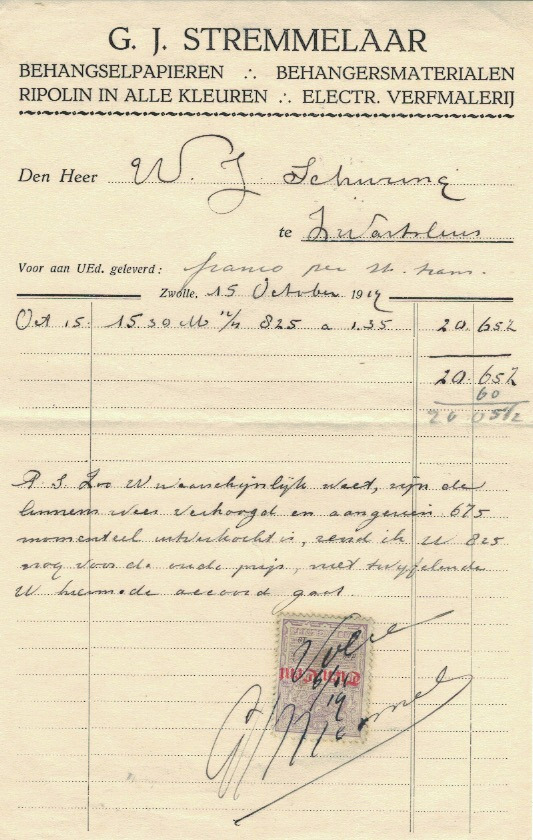 G. J. STREMMELAAR
BEHANGSELPAPIEREN ∴ BEHANGERSMATERIALEN
RIPOLIN IN ALLE KLEUREN ∴ ELECTR. VERFMALERIJ
Den Heer W. J. Schuring
te Zwartsluis
Voor aan UEd. geleverd: franco per st. tram.
Zwolle, 15 October 1919
Oct 15. 15.30 M 825 a 1.35 20.65½
20.65½
60
20 05½
P S Zoo U waarschijnlijk weet, zijn de
linnens weer verhoogd en aangezien 675
momenteel uitverkocht is, zend ik U 825
nog voor de oude prijs, niet twijfelende
U hiermede accoord gaat.
Voldaan
6/11
19
G J Stremmel